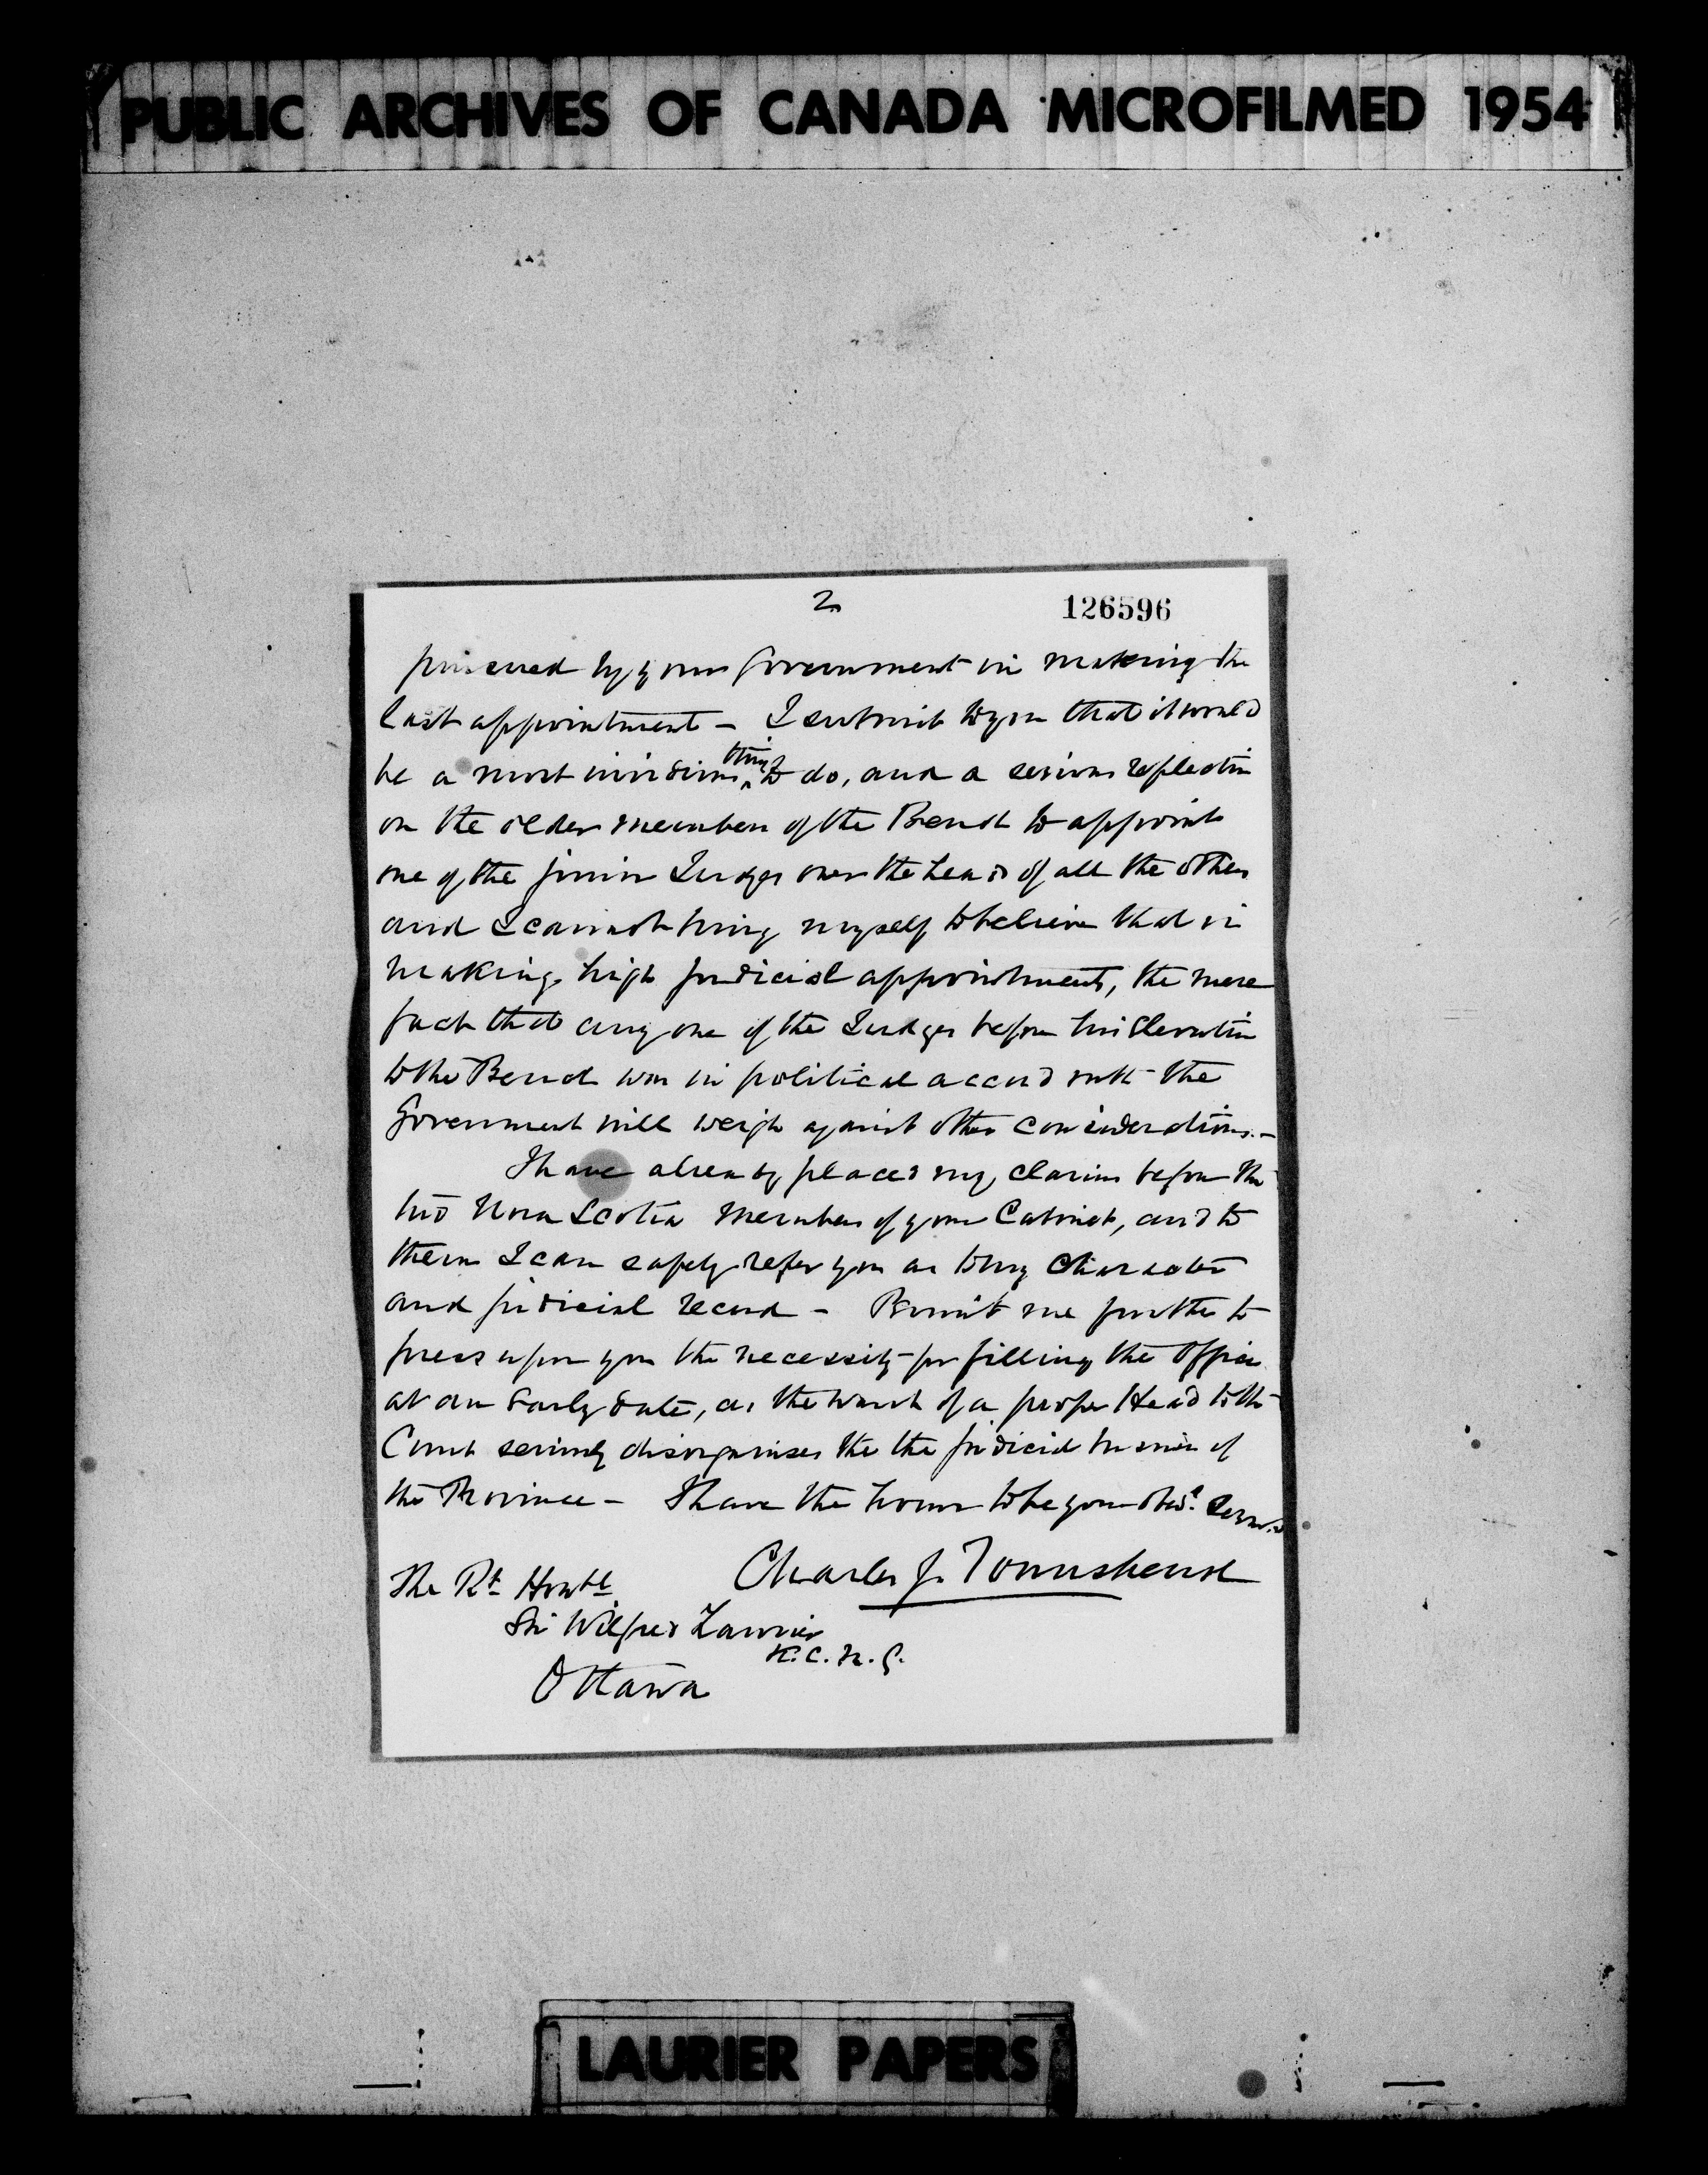 PUBLIC ARCHIVES OF CANADA MICROFILMED 1954
2
126596
pursued by your Government in making the
last appointment - I submit to you that it would
be a most invidious thing to do, and a serious reflection
on the older members of the Bench to appoint
one of the junior Judges over the head of all the others
and I cannot bring myself to believe that in
making high judicial appointments, the mere
fact that any one of the Judges before his elevation
to the Bench was in political accord with the
Government will weigh against other considerations. -
I have already placed my claims before the
two Nova Scotia Members of your Cabinet, and to
them I can safely refer you as to my character
and judicial record - Permit me further to
press upon you the necessity for filling the office
at an early date, as the want of a proper Head to the
Court seriously disorganises the the judicial business of
the Province - I have the honor to be your obedt. Servant
Charles J. Townshend
The Rt Honble
Sir Wilfred Laurier
K.C.M.G.
Ottawa
LAURIER PAPERS